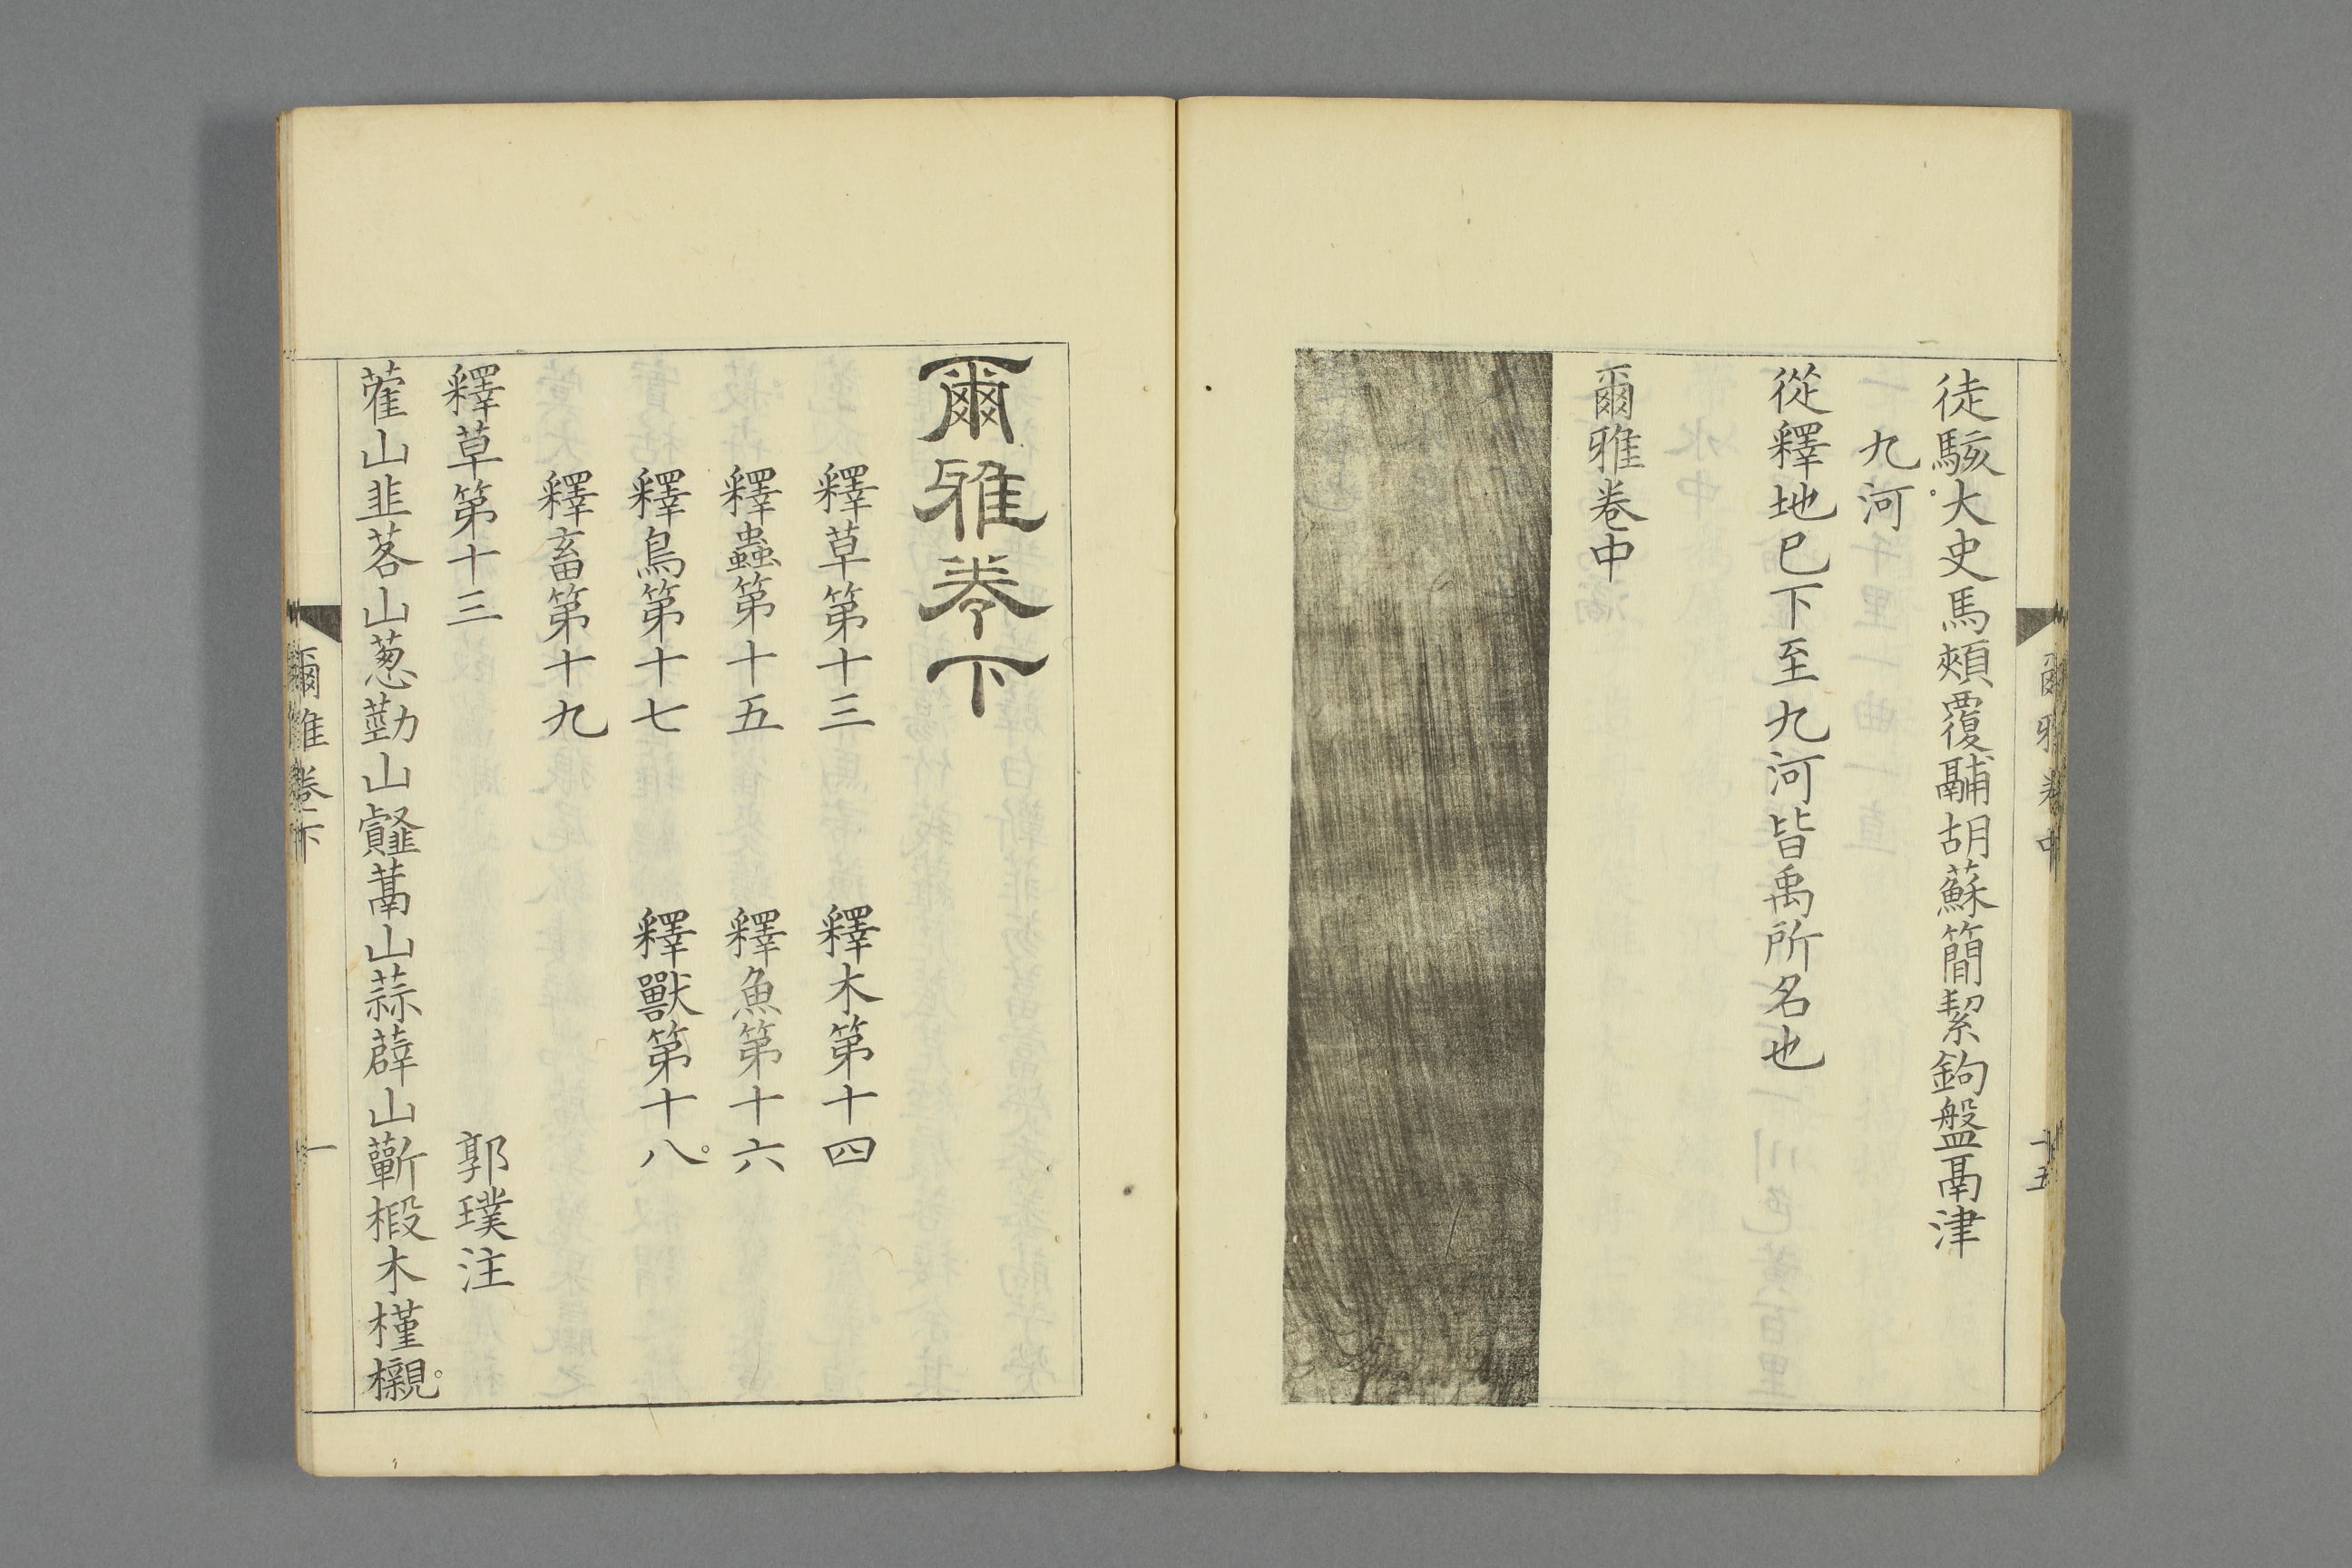 徒駭大史馬頰覆鬴胡蘇簡絜鉤盤鬲津
九河
從釋地巳下至九河皆禹所名也
爾雅卷中
爾雅卷中
十五
爾雅卷下
釋草第十三 釋木第十四
釋蟲第十五 釋魚第十六
釋鳥第十七 釋獸第十八
釋畜第十九
釋草第十三 郭璞注
藿山韭茖山葱葝山䪥蒚山蒜薜山蘄椴木槿櫬
爾雅卷下
一